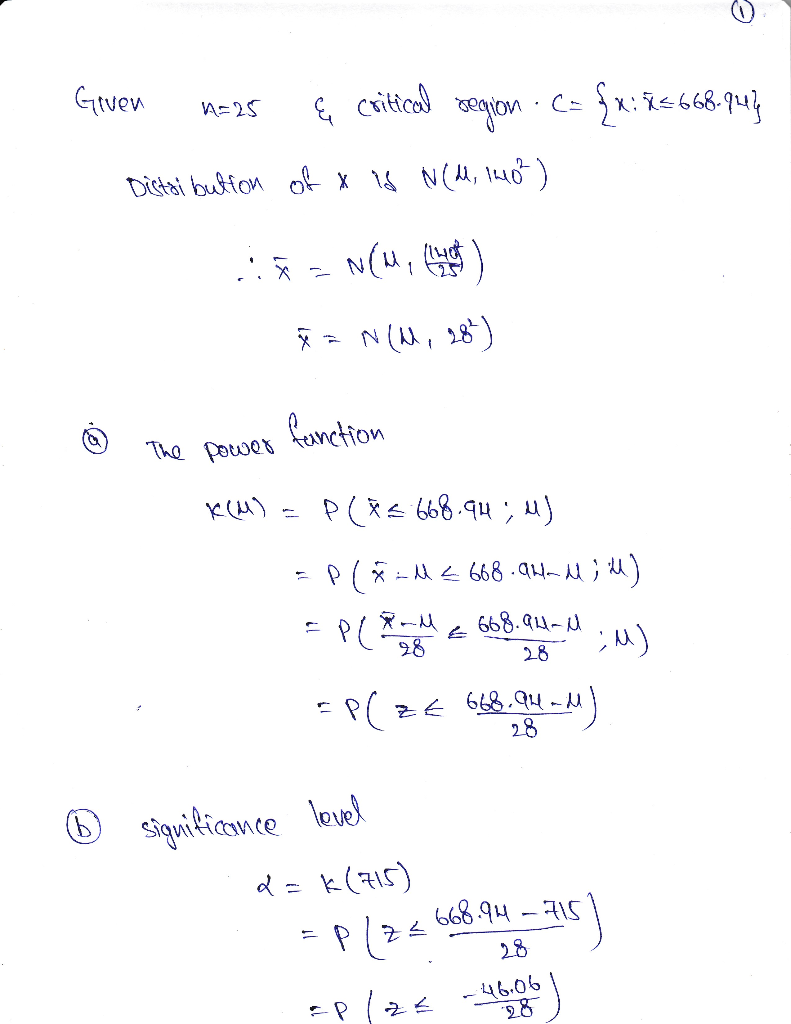 ①
Given n=25 & critical region . C= {x: x̄≤668.94}
Distribution of x is N(μ, 140²)
∴ x̄ = N(μ, (140²/25))
x̄ = N(μ, 28²)
ⓐ The power function
K(μ) = P(x̄ ≤ 668.94 ; μ)
= P(x̄-μ ≤ 668.94-μ ; μ)
= P((x̄-μ)/28 ≤ (668.94-μ)/28 ; μ)
= P(z ≤ (668.94-μ)/28)
ⓑ significance level
α = K(715)
= P(z ≤ (668.94-715)/28)
= P(z ≤ -46.06/28)